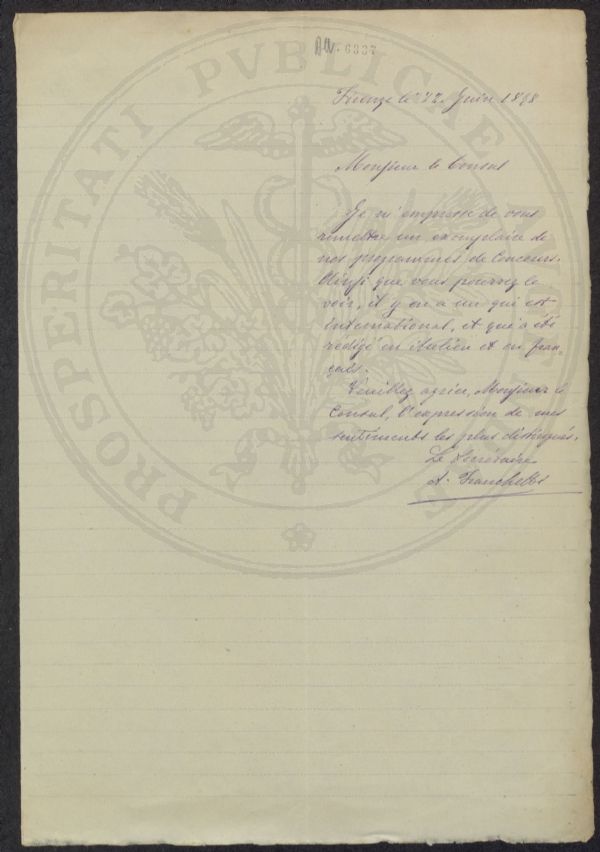 AW. 6337
PROSPERITATI PVBLICAE
Firenze le 22. Juin 1898
Monsieur le Consul
Je m'empresse de vous
remettre un exemplaire de
nos programmes de Concours.
Ainsi que vous pourrez le
voir, il y en a un qui est
international, et qui a été
redigé en italien et en fran-
çais.
Veuillez agréer, Monsieur le
Consul, l'expression de mes
sentiments les plus distingués.
Le Secrétaire
A. Franchetti